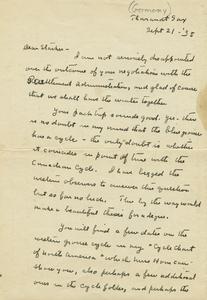 (Germany)
Tharandt Sax
Sept 21 - '35
Dear Stricker -
I am not seriously disappointed
over the outcome of your negotiation with the
Resettlement Administration, and glad of course
that we shall have the winter together.
Your partridge sounds good. Yes - there
is no doubt in my mind that the blue grouse
has a cycle - the only doubt is whether
it coincides in point of time with the
Canadian Cycle. I have begged the
western observers to answer this question
but so far no luck. This by the way would
make a beautiful thesis for a degree.
You will find a few dates on the
western grouse cycle in my "Cycle Chart
of North America" which Miss Horn can
show you, also perhaps a few additional
ones in the Cycle folder, and perhaps the